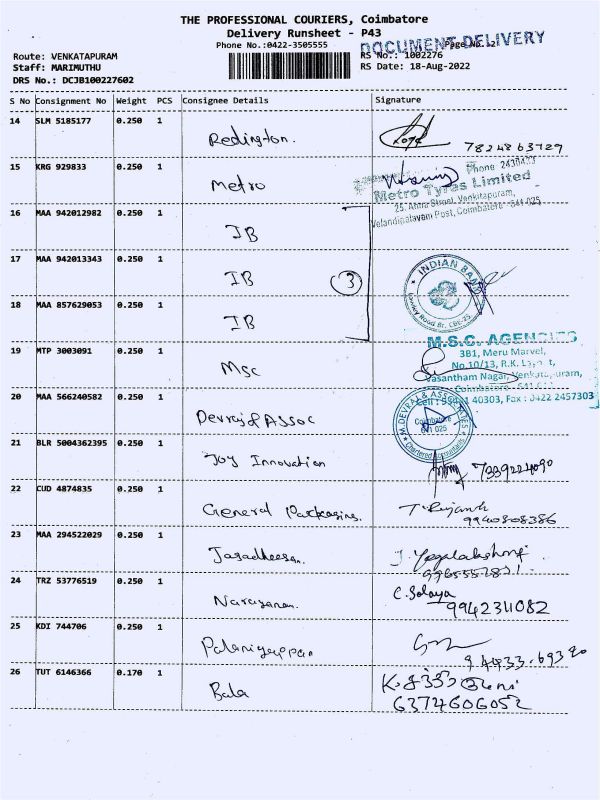 THE PROFESSIONAL COURIERS, Coimbatore
Delivery Runsheet - P43
Phone No.:0422-3505555
DOCUMENT DELIVERY
Route: VENKATAPURAM
RS No.: 1002276
Staff: MARIMUTHU
RS Date: 18-Aug-2022
DRS No.: DCJB100227602
S No Consignment No Weight PCS Consignee Details Signature
14 SLM 5185177 0.250 1 Redington.
15 KRG 929833 0.250 1 Metro
Phone 2430433
Metro Tyres Limited
Coimbatore - 641 025
16 MAA 942012982 0.250 1 IB
17 MAA 942013343 0.250 1 IB 3
INDIAN BANK
18 MAA 857629053 0.250 1 IB
19 MTP 3003091 0.250 1 Msc
M.S.C. AGENCIES
3B1, Meru Marvel,
No.10/13, R.K.
Vasantham Nagar, Venkatapuram,
40303, Fax : 0422 2457303
20 MAA 566240582 0.250 1 Devraj & Assoc
M.DEVRAJ & ASSOCIATES
Coimbatore
641 025
Chartered Accountants
21 BLR 5004362395 0.250 1 Joy Innovation
22 CUD 4874835 0.250 1 General Packaging.
9940808386
23 MAA 294522029 0.250 1 Jagadheesan.
24 TRZ 53776519 0.250 1 Narayanan.
9942311082
25 KDI 744706 0.250 1 Palaniyappan
26 TUT 6146366 0.170 1 Bala
6374606052